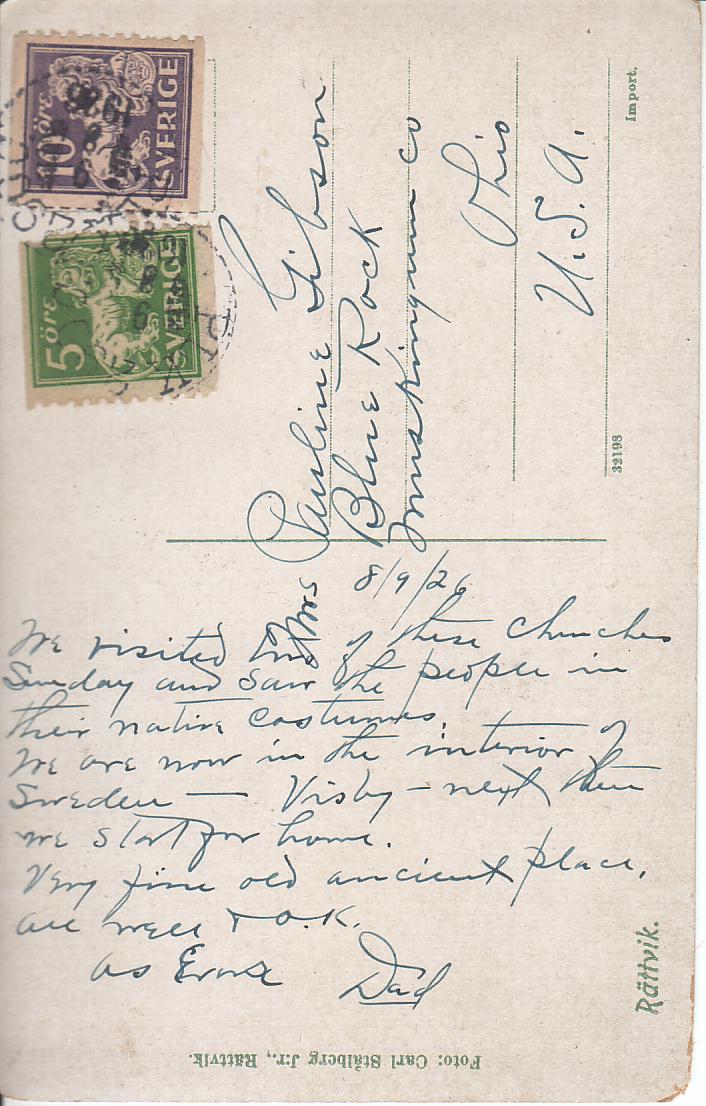 10 öre
SVERIGE
5 öre
SVERIGE
Mrs Pauline Gibson
Blue Rock
Muskingum co
Ohio
U.S.A.
Import.
32198
8/9/26
We visited one of these churches
Sunday and saw the people in
their native costumes.
We are now in the interior of
Sweden — Visby – next then
we start for home.
Very fine old ancient place.
all well + O.K.
as Ever
Dad
Rättvik.
Foto: Carl Stålberg J:r., Rättvik.